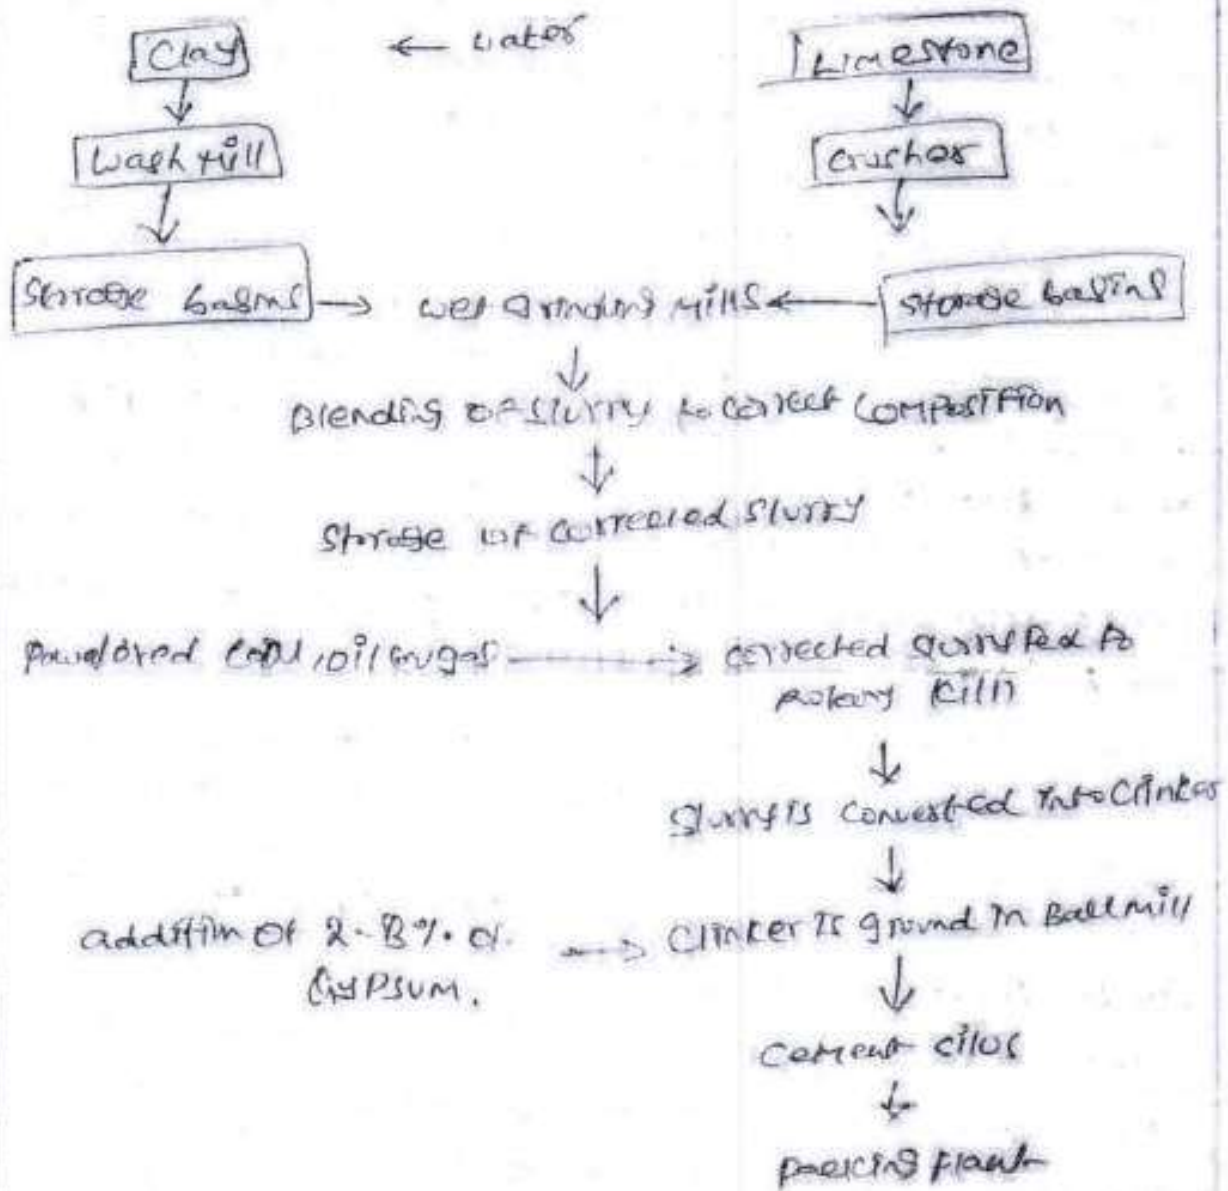 Clay
← water
Limestone
Wash mill
Crusher
Storage basins → wet Grinding Mills ← Storage basins
Blending of slurry to correct composition
Storage of corrected slurry
Powdered coal, oil or gas → corrected slurry fed to
Rotary Kiln
Slurry is converted into Clinker
addition of 2-3% of → Clinker is ground in Ball mill
Gypsum.
Cement silos
packing plant